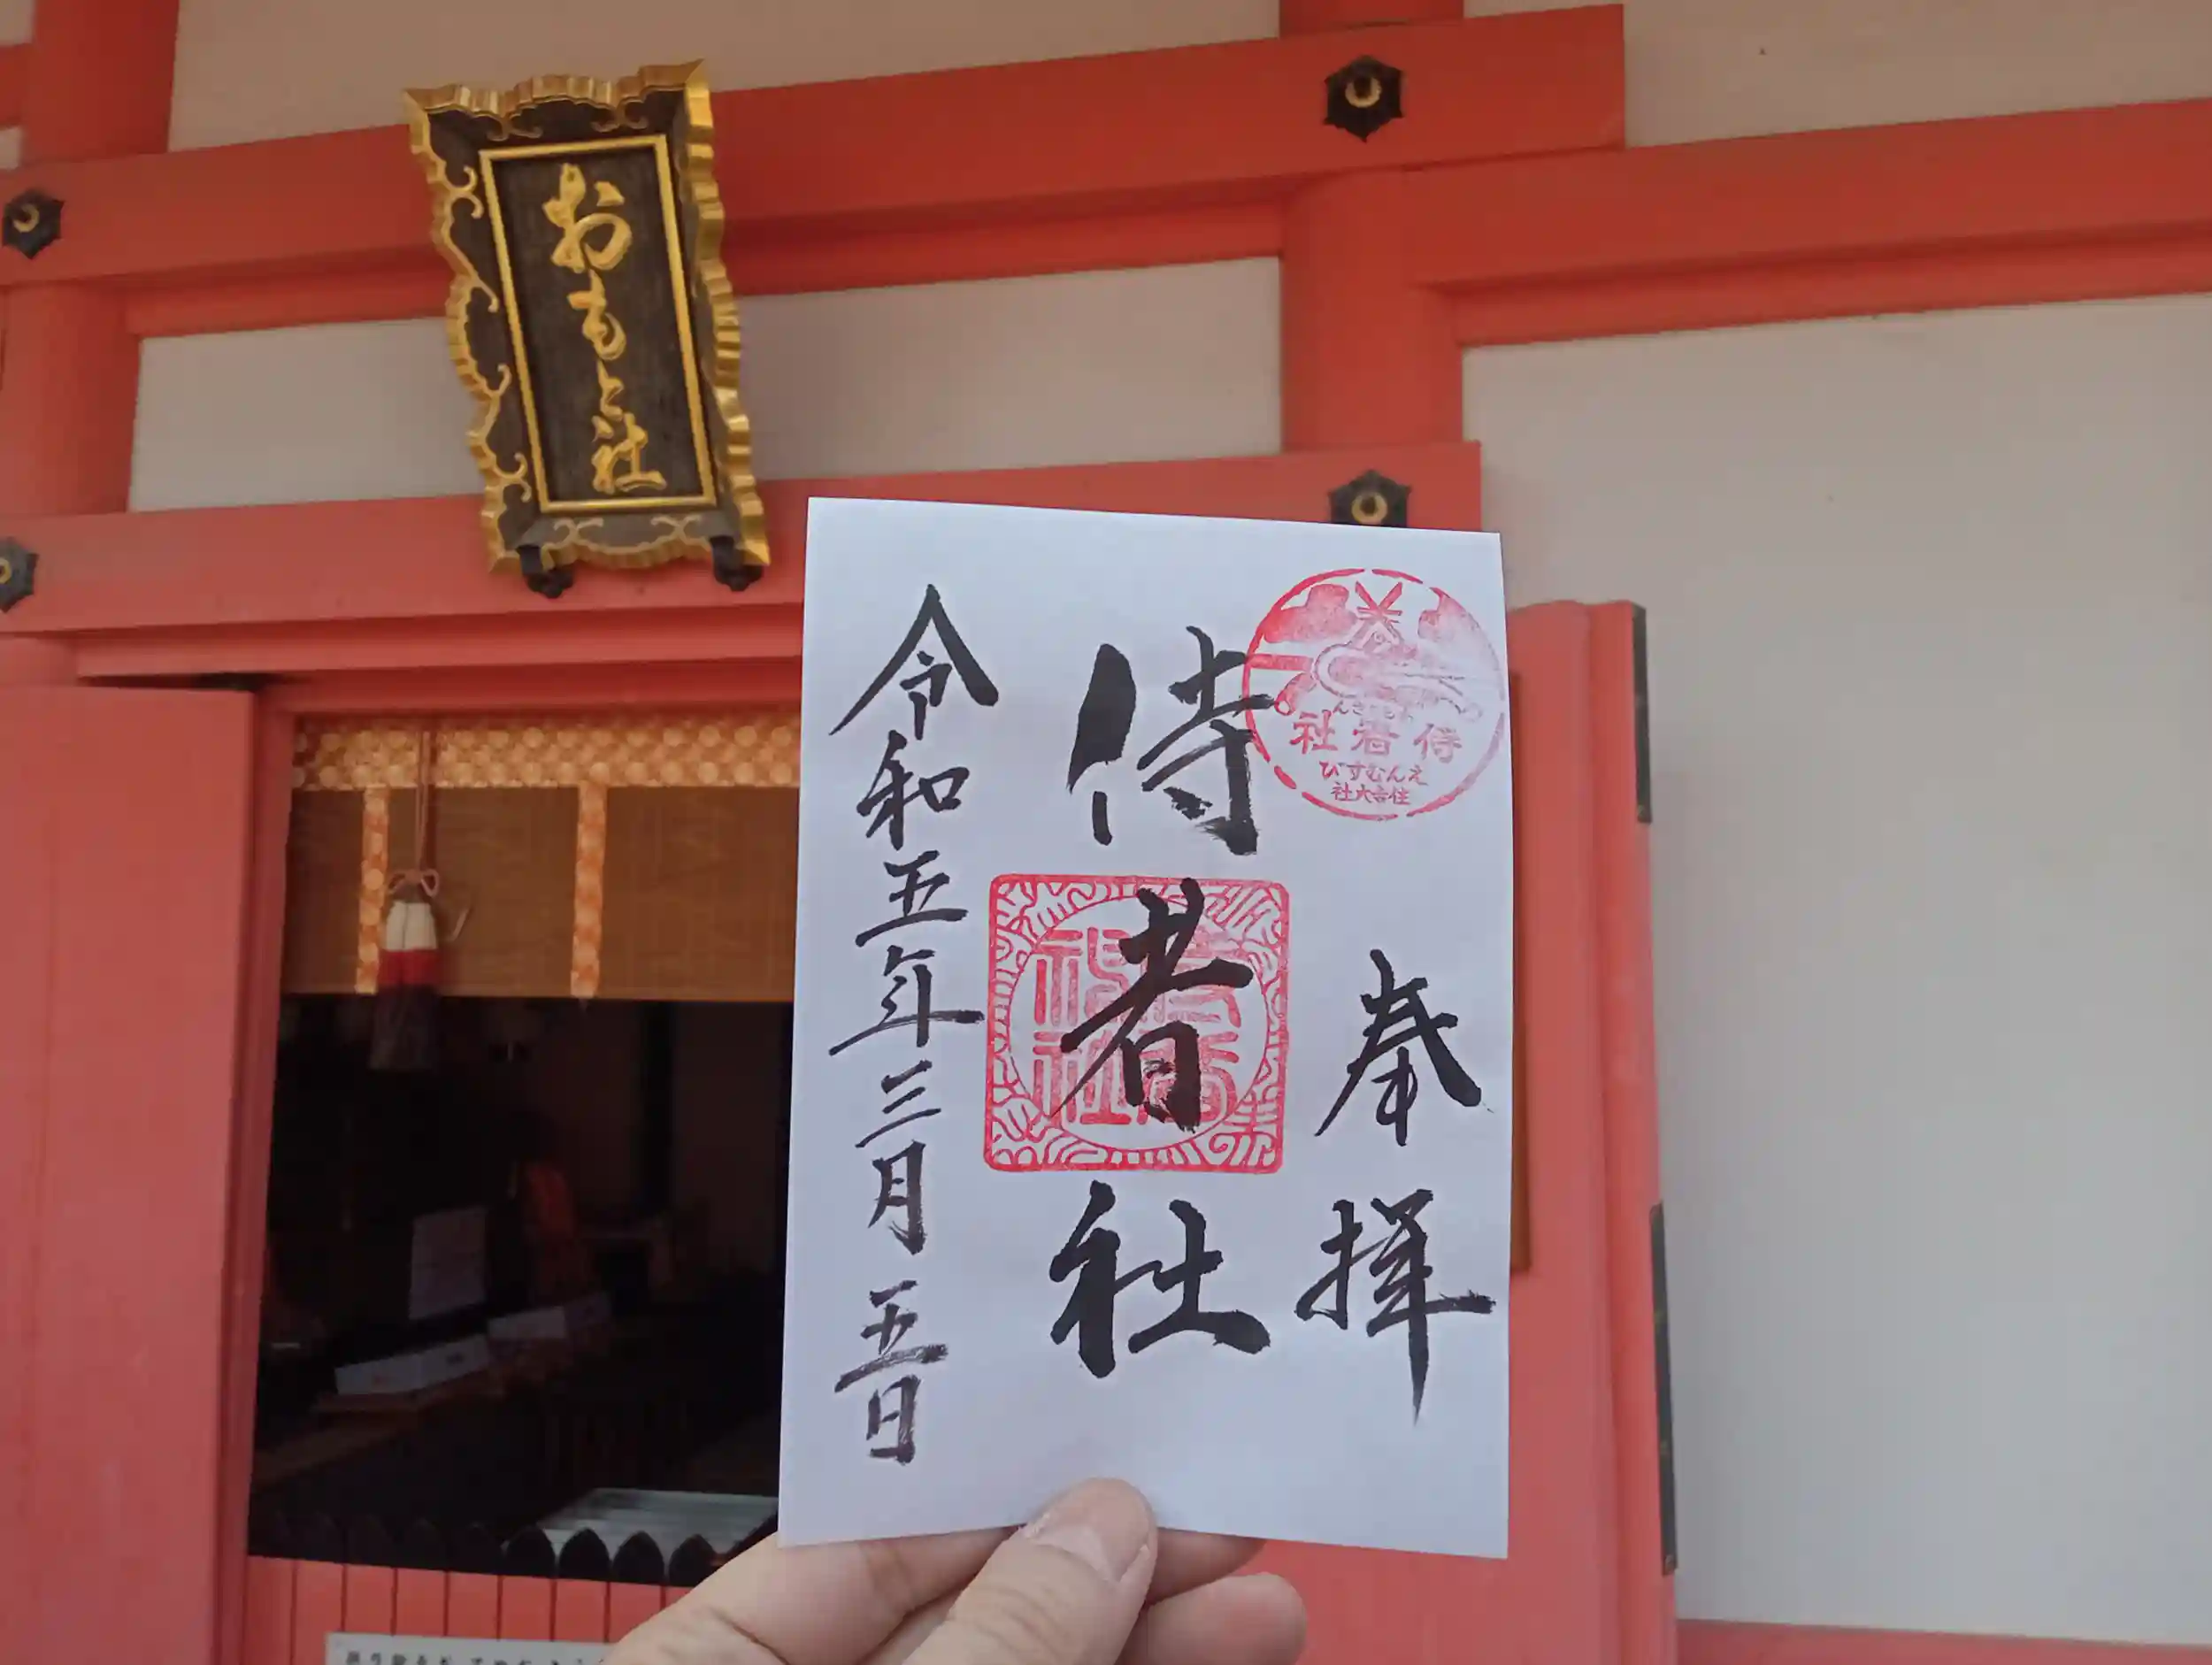 おもと社
奉拝
侍者社
令和五年三月五日
侍者社
えんむすび
住吉大社